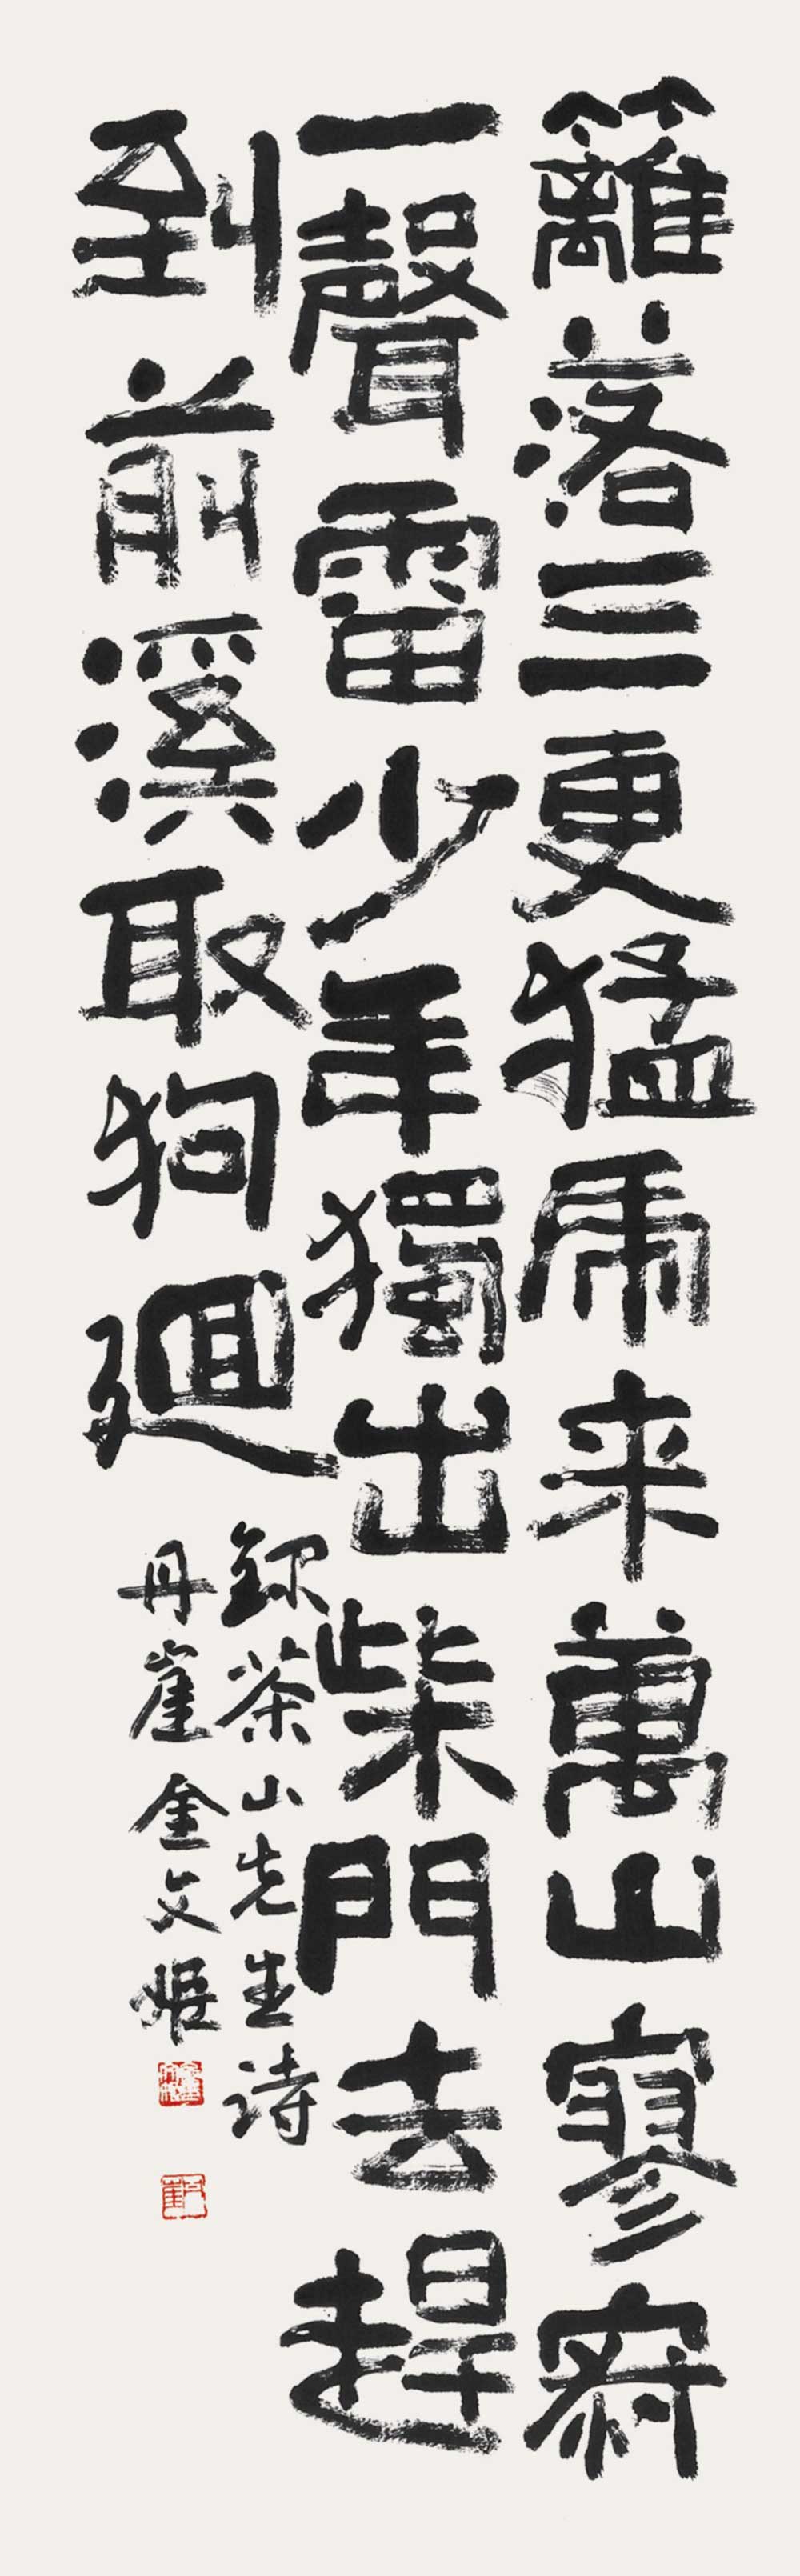 籬落三更猛虎来萬山寥寂
一聲雷少年獨出柴門去趕
到前溪取狗廻
錄茶山先生诗
丹崖金文姬